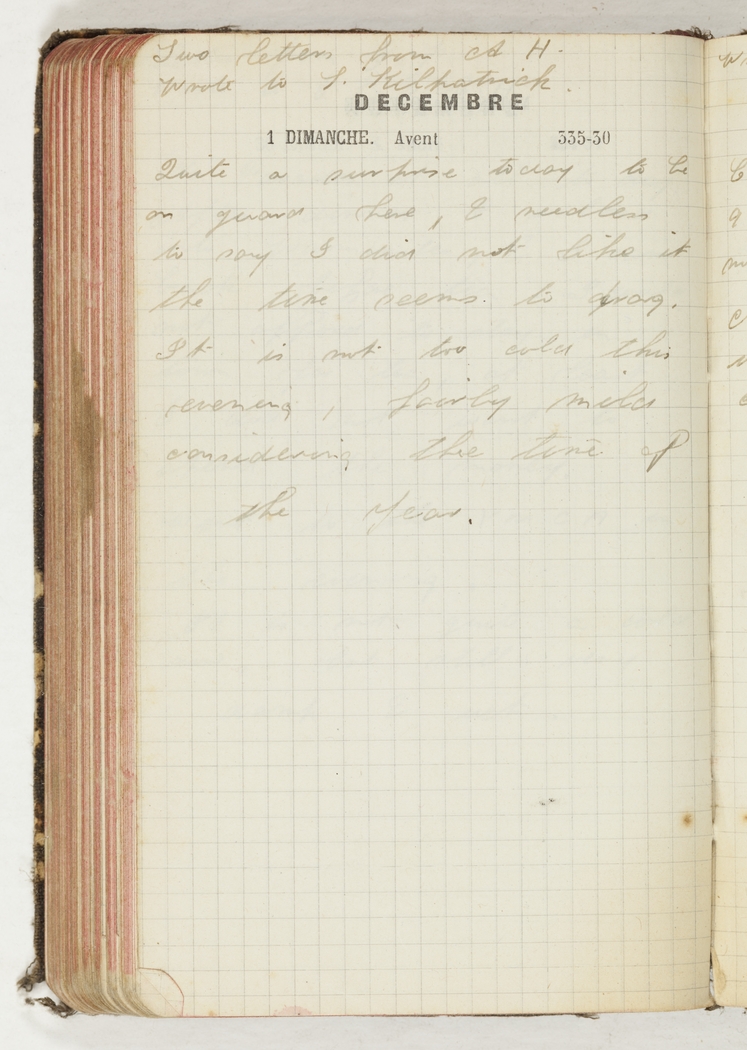 Two letters from A H.
Wrote to S. Kilpatrick.
DECEMBRE
1 DIMANCHE. Avent 335-30
Quite a surprise today to be
on guard here, & needless
to say I did not like it
the time seems to drag.
It is not too cold this
evening, fairly mild
considering the time of
the year.